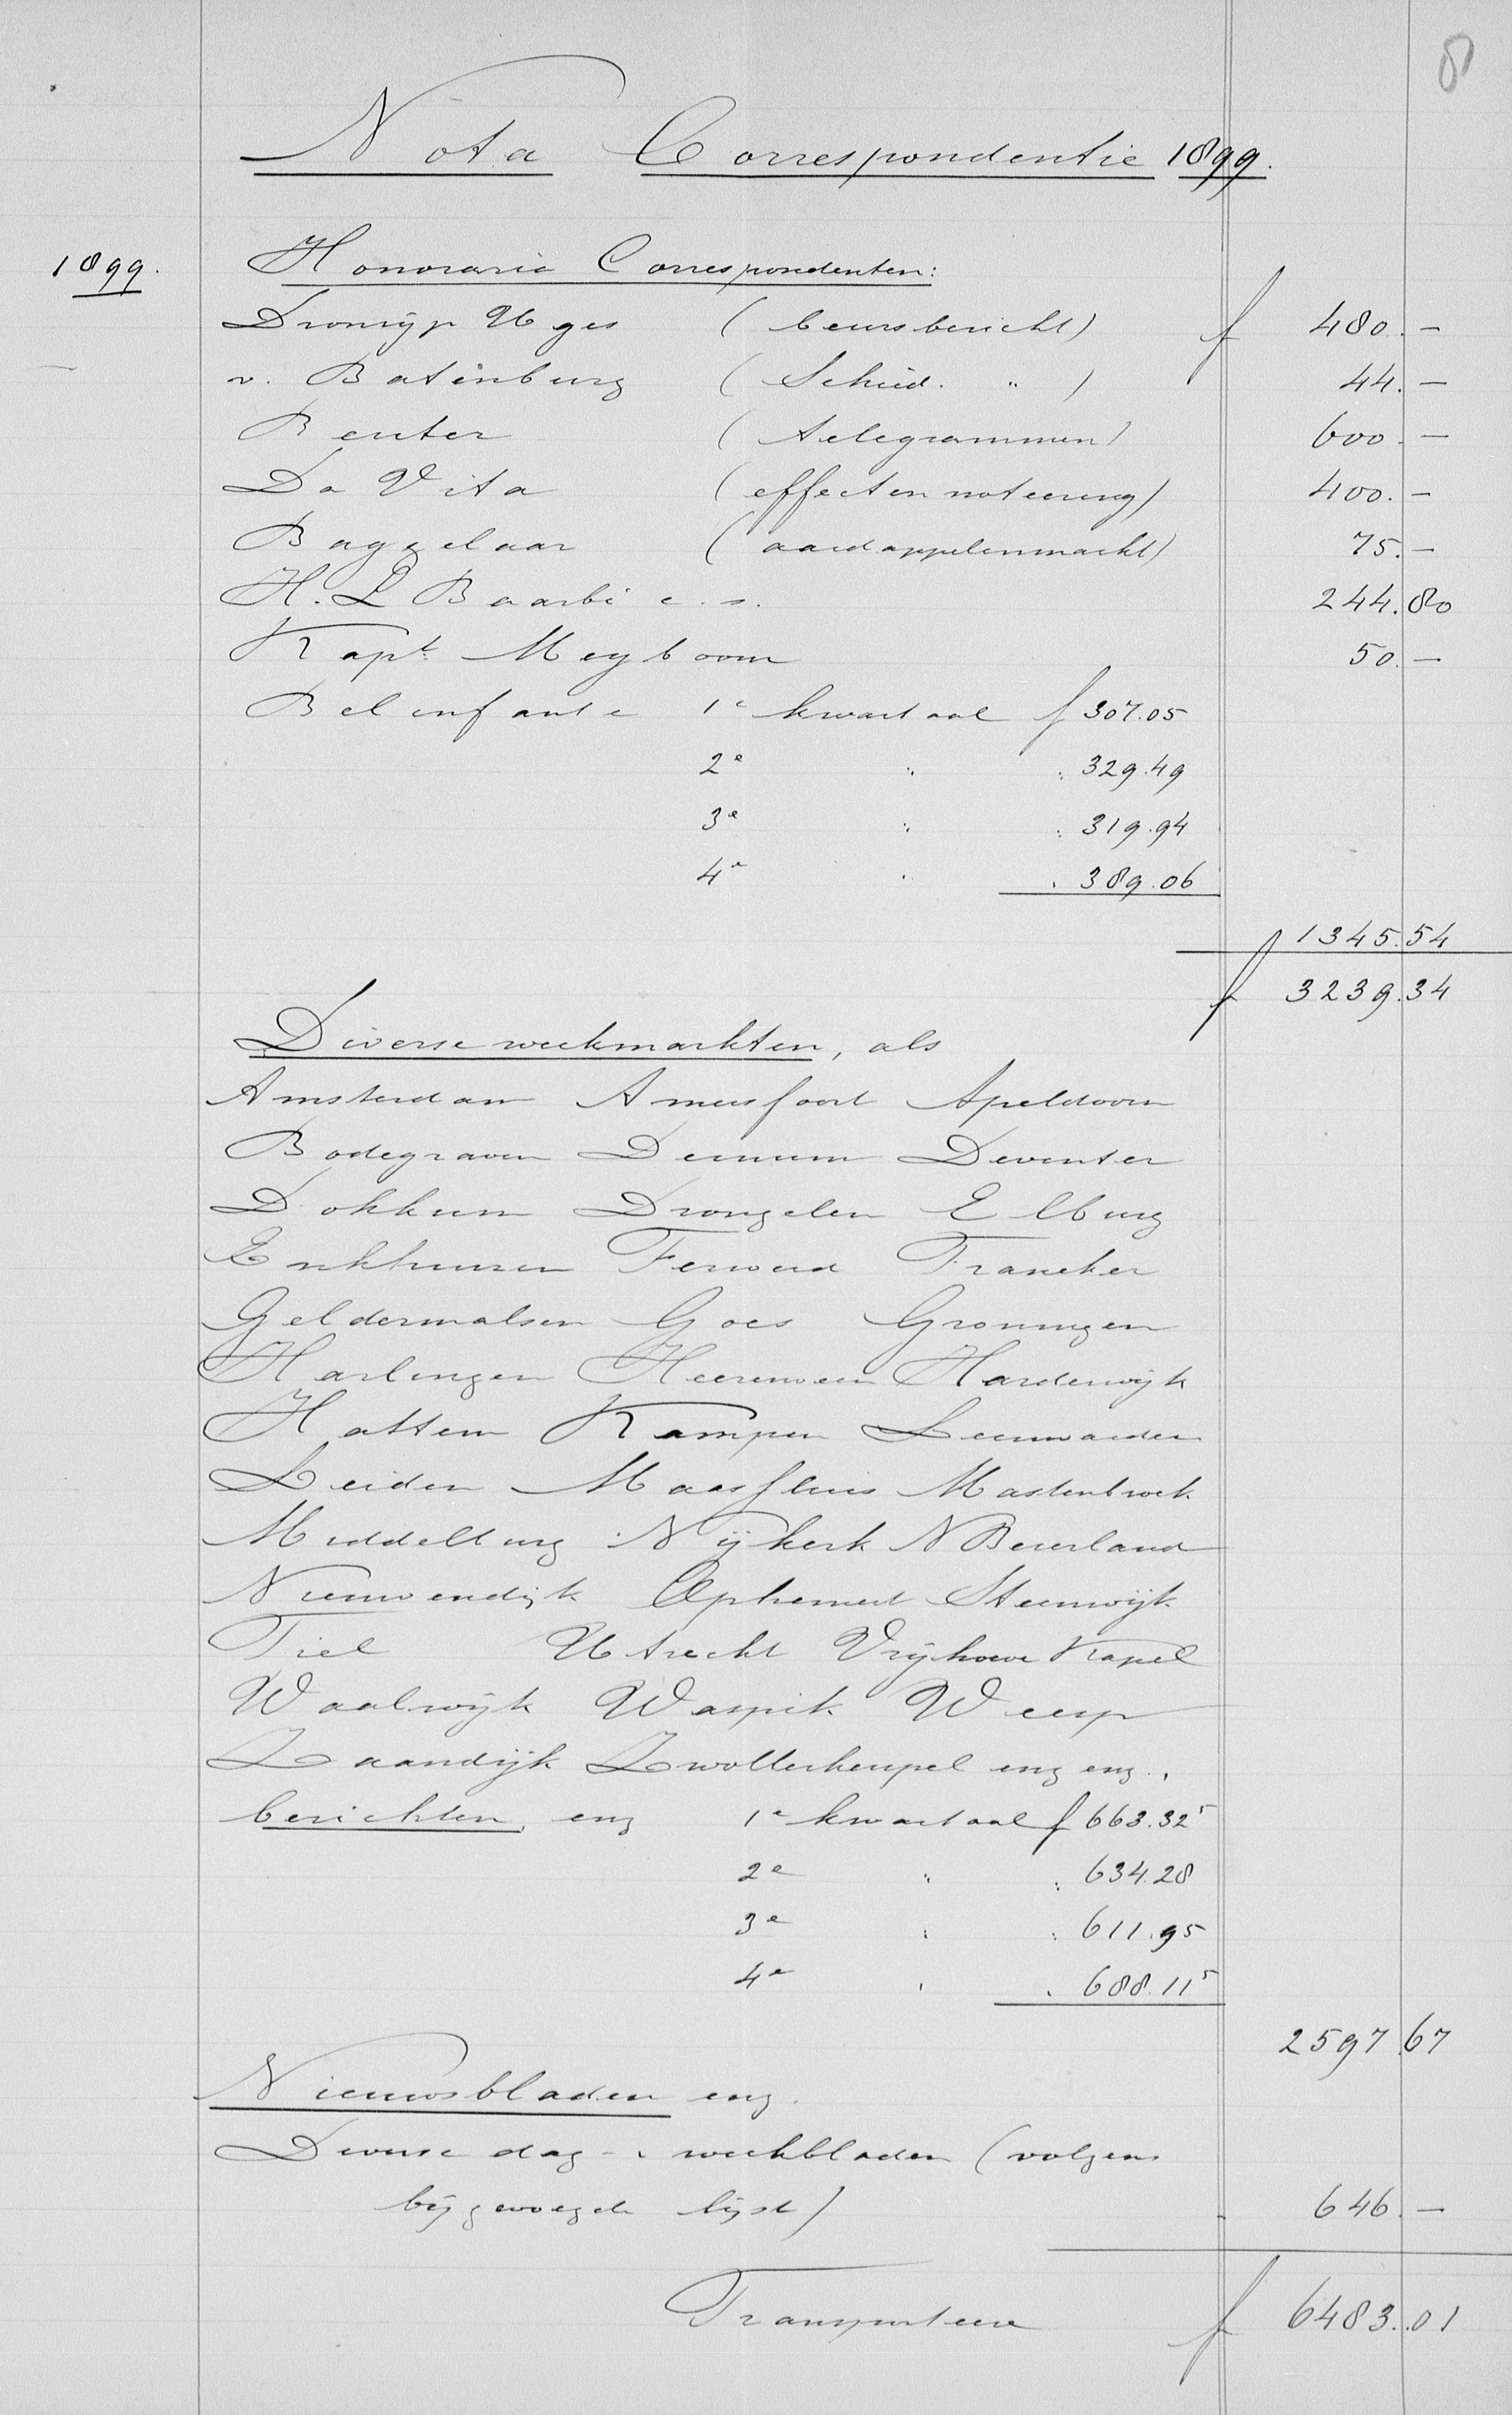 8
Nota Correspondentie 1899.
1899. Honoraria Correspondenten:
Dronrijp Uges (beursbericht) f 480.—
v. Batenburg (Schied. " ) 44.—
Reuter (telegrammen) 600.—
Da Vita (effecten noteering) 400.—
Baggelaar (aardappelenmarkt) 75.—
H. L Baarbé c.s. 244.80
Kapt. Meyboom 50.—
Belinfante 1e kwartaal f 307.05
2e " " 329.49
3e " " 319.94
4e " " 389.06
1345.54
f 3239.34
Diverse weekmarkten, als
Amsterdam Amersfoort Apeldoorn
Bodegraven Deinum Deventer
Dokkum Drongelen Elburg
Enkhuizen Ferwerd Franeker
Geldermalsen Goes Groningen
Harlingen Heerenveen Harderwijk
Hattem Kampen Leeuwarden
Leiden Maassluis Mastenbroek
Middelburg Nijkerk N Beierland
Nieuwendijk Ophemert Steenwijk
Tiel Utrecht Vrijhoeve Kapel
Waalwijk Waspik Weesp
Zaandijk Zwollerkerspel enz enz.
berichten, enz 1e kwartaal f 663.325
2e " " 634.28
3e " " 611.95
4e " " 688.115
2597.67
Nieuwsbladen enz.
Diverse dag- & weekbladen (volgens
bijgevoegde lijst) 646.—
Transporteere f 6483.01